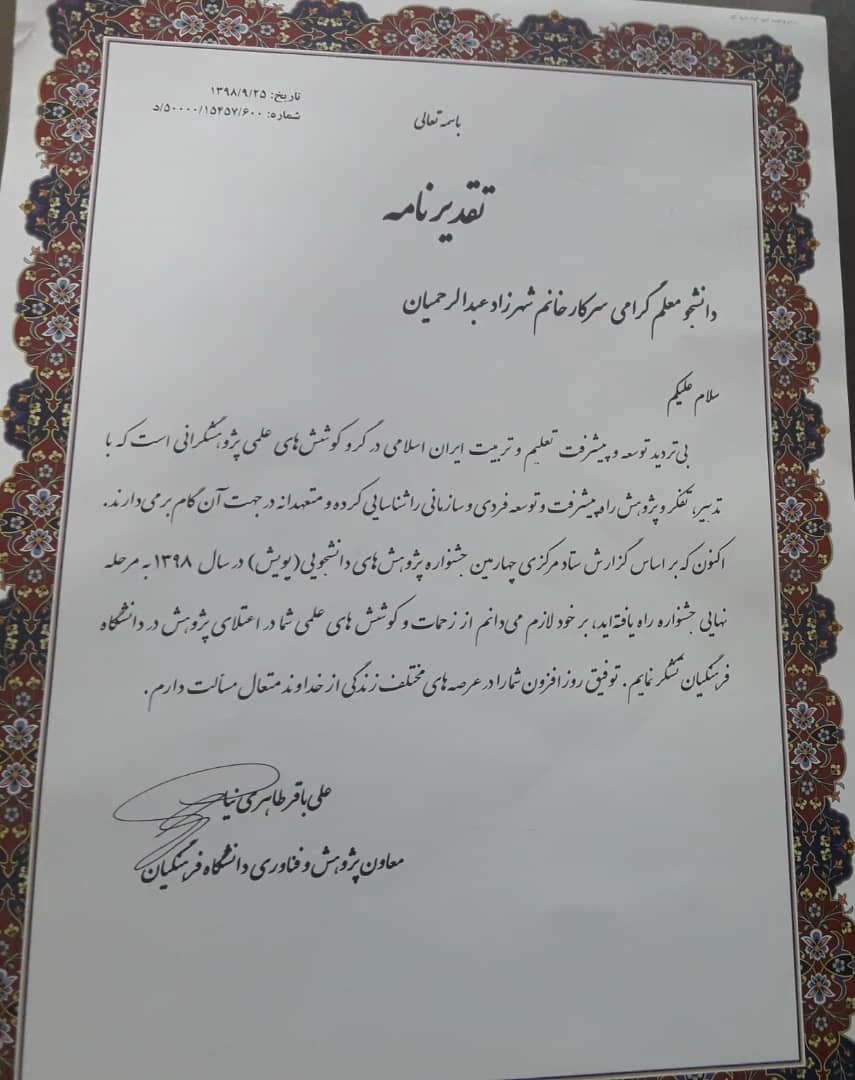 تاریخ: ۱۳۹۸/۹/۲۵
شماره: ۵۰۰۰۰/۱۵۴۵۷/۶۰۰/د
باسمه تعالی
تقدیرنامه
دانشجو معلم گرامی سرکار خانم شهرزاد عبدالرحمیان
سلام علیکم
بی‌تردید توسعه و پیشرفت تعلیم و تربیت ایران اسلامی در گرو کوشش‌های علمی پژوهشگرانی است که با
تدبیر، تفکر و پژوهش راه پیشرفت و توسعه فردی و سازمانی را شناسایی کرده و متعهدانه در جهت آن گام برمی‌دارند.
اکنون که بر اساس گزارش ستاد مرکزی چهارمین جشنواره پژوهش‌های دانشجویی(پویش) در سال ۱۳۹۸ به مرحله
نهایی جشنواره راه یافته‌اید، بر خود لازم می‌دانم از زحمات و کوشش های علمی شما در اعتلای پژوهش در دانشگاه
فرهنگیان تشکر نمایم. توفیق روزافزون شما را در عرصه های مختلف زندگی از خداوند متعال مسألت دارم.
علی باقر طاهری نیا
معاون پژوهش و فناوری دانشگاه فرهنگیان